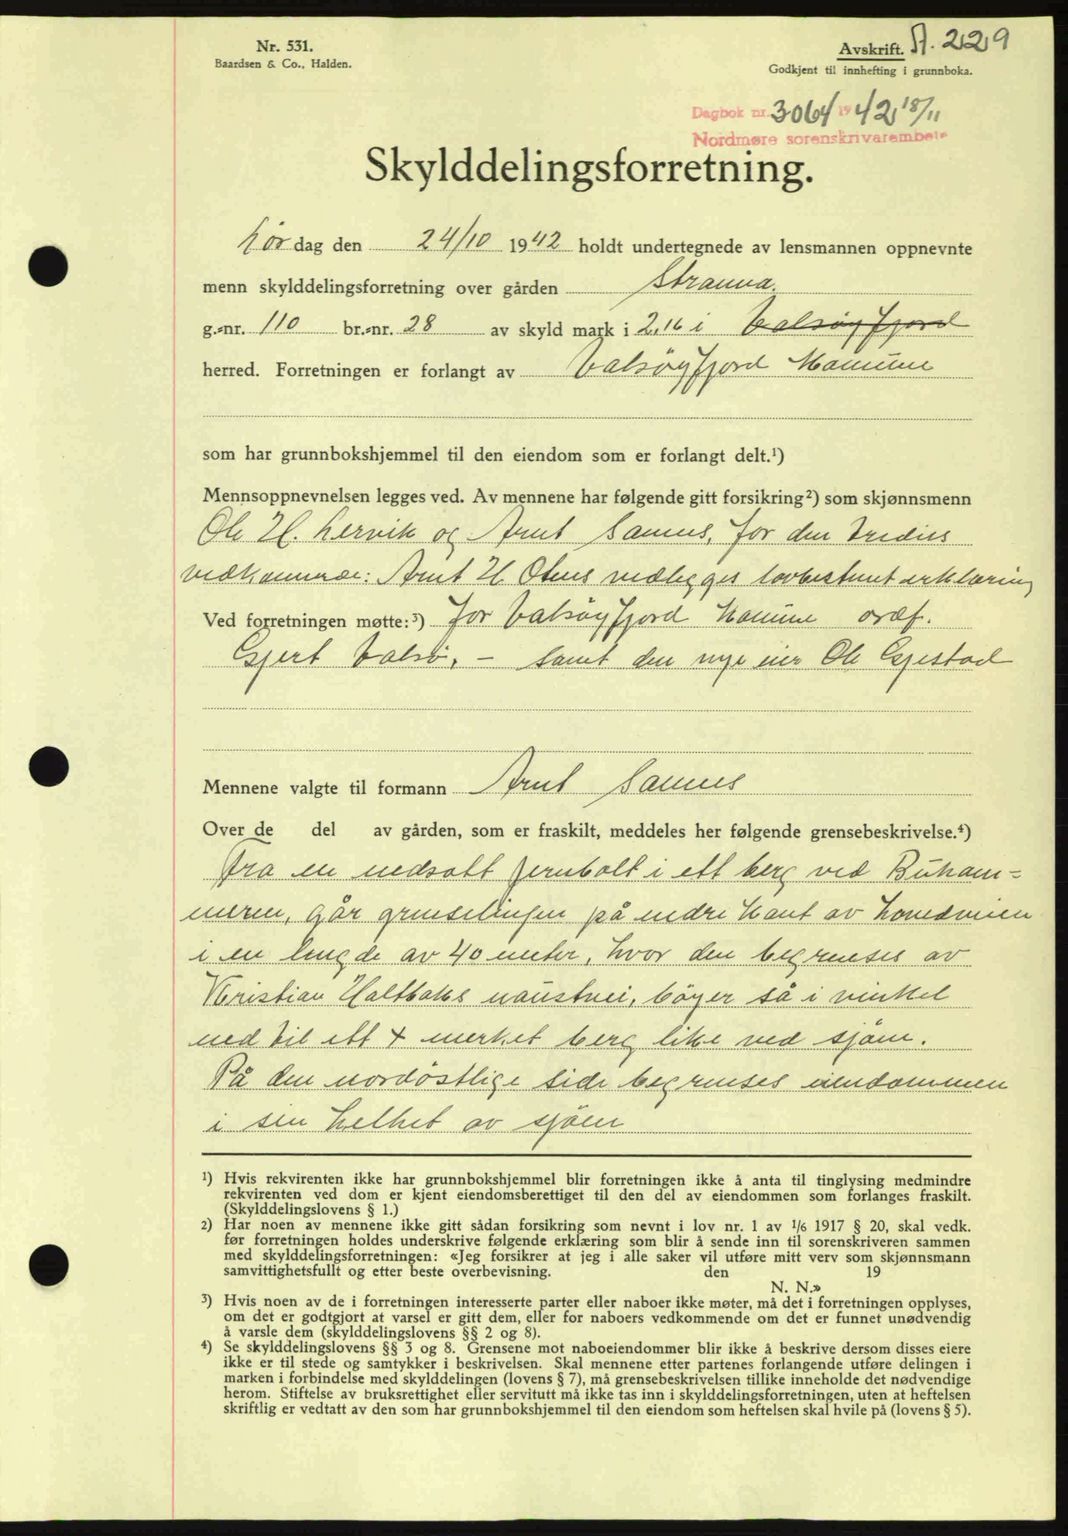 Nr. 531.
Baardsen & Co., Halden.
Avskrift. A. 229
Godkjent til innhefting i grunnboka.
Dagbok nr. 3064 1942 18/11
Nordmøre sorenskrivarembete
Skylddelingsforretning.
Lør dag den 24/10 1942 holdt undertegnede av lensmannen oppnevnte
menn skylddelingsforretning over gården Stranna.
g.-nr. 110 br.-nr. 28 av skyld mark i 2,16 i Valsøyfjord
herred. Forretningen er forlangt av Valsøyfjord Komune
som har grunnbokshjemmel til den eiendom som er forlangt delt.¹)
Mennsoppnevnelsen legges ved. Av mennene har følgende gitt forsikring²) som skjønnsmenn
Ole H. Lervik og Arnt Sannes, for den tredies
vedkommende: Arnt H. Otnes vedlegges lovbestemt erklæring
Ved forretningen møtte:³) for Valsøyfjord Komune ordf.
Gjert Valsø, – samt den nye eier Ole Gjestad
Mennene valgte til formann Arnt Sannes
Over de del av gården, som er fraskilt, meddeles her følgende grensebeskrivelse.⁴)
Fra en nedsatt jernbolt i ett berg ved Būham=
meren, går grenselinjen på nedre kant av hovedveien
i en lengde av 40 meter, hvor den begrenses av
Kristian Holtbaks naustvei, böyer så i vinkel
ned til ett + merket berg like ved sjöen.
På den nordöstlige side begrenses eiendommen
i sin helhet av sjöen
¹) Hvis rekvirenten ikke har grunnbokshjemmel blir forretningen ikke å anta til tinglysing medmindre
rekvirenten ved dom er kjent eiendomsberettiget til den del av eiendommen som forlanges fraskilt.
(Skylddelingslovens § 1.)
²) Har noen av mennene ikke gitt sådan forsikring som nevnt i lov nr. 1 av 1/6 1917 § 20, skal vedk.
før forretningen holdes underskrive følgende erklæring som blir å sende inn til sorenskriveren sammen
med skylddelingsforretningen: «Jeg forsikrer at jeg i alle saker vil utføre mitt verv som skjønnsmann
samvittighetsfullt og etter beste overbevisning. den 19
N. N.»
³) Hvis noen av de i forretningen interesserte parter eller naboer ikke møter, må det i forretningen opplyses,
om det er godtgjort at varsel er gitt dem, eller for naboers vedkommende om det er funnet unødvendig
å varsle dem (skylddelingslovens §§ 2 og 8).
⁴) Se skylddelingslovens §§ 3 og 8. Grensene mot naboeiendommer blir ikke å beskrive dersom disses eiere
ikke er til stede og samtykker i beskrivelsen. Skal mennene etter partenes forlangende utføre delingen i
marken i forbindelse med skylddelingen (lovens § 7), må grensebeskrivelsen tillike inneholde det nødvendige
herom. Stiftelse av bruksrettighet eller servitutt må ikke tas inn i skylddelingsforretningen, uten at heftelsen
skriftlig er vedtatt av den som har grunnbokshjemmel til den eiendom som heftelsen skal hvile på (lovens § 5).